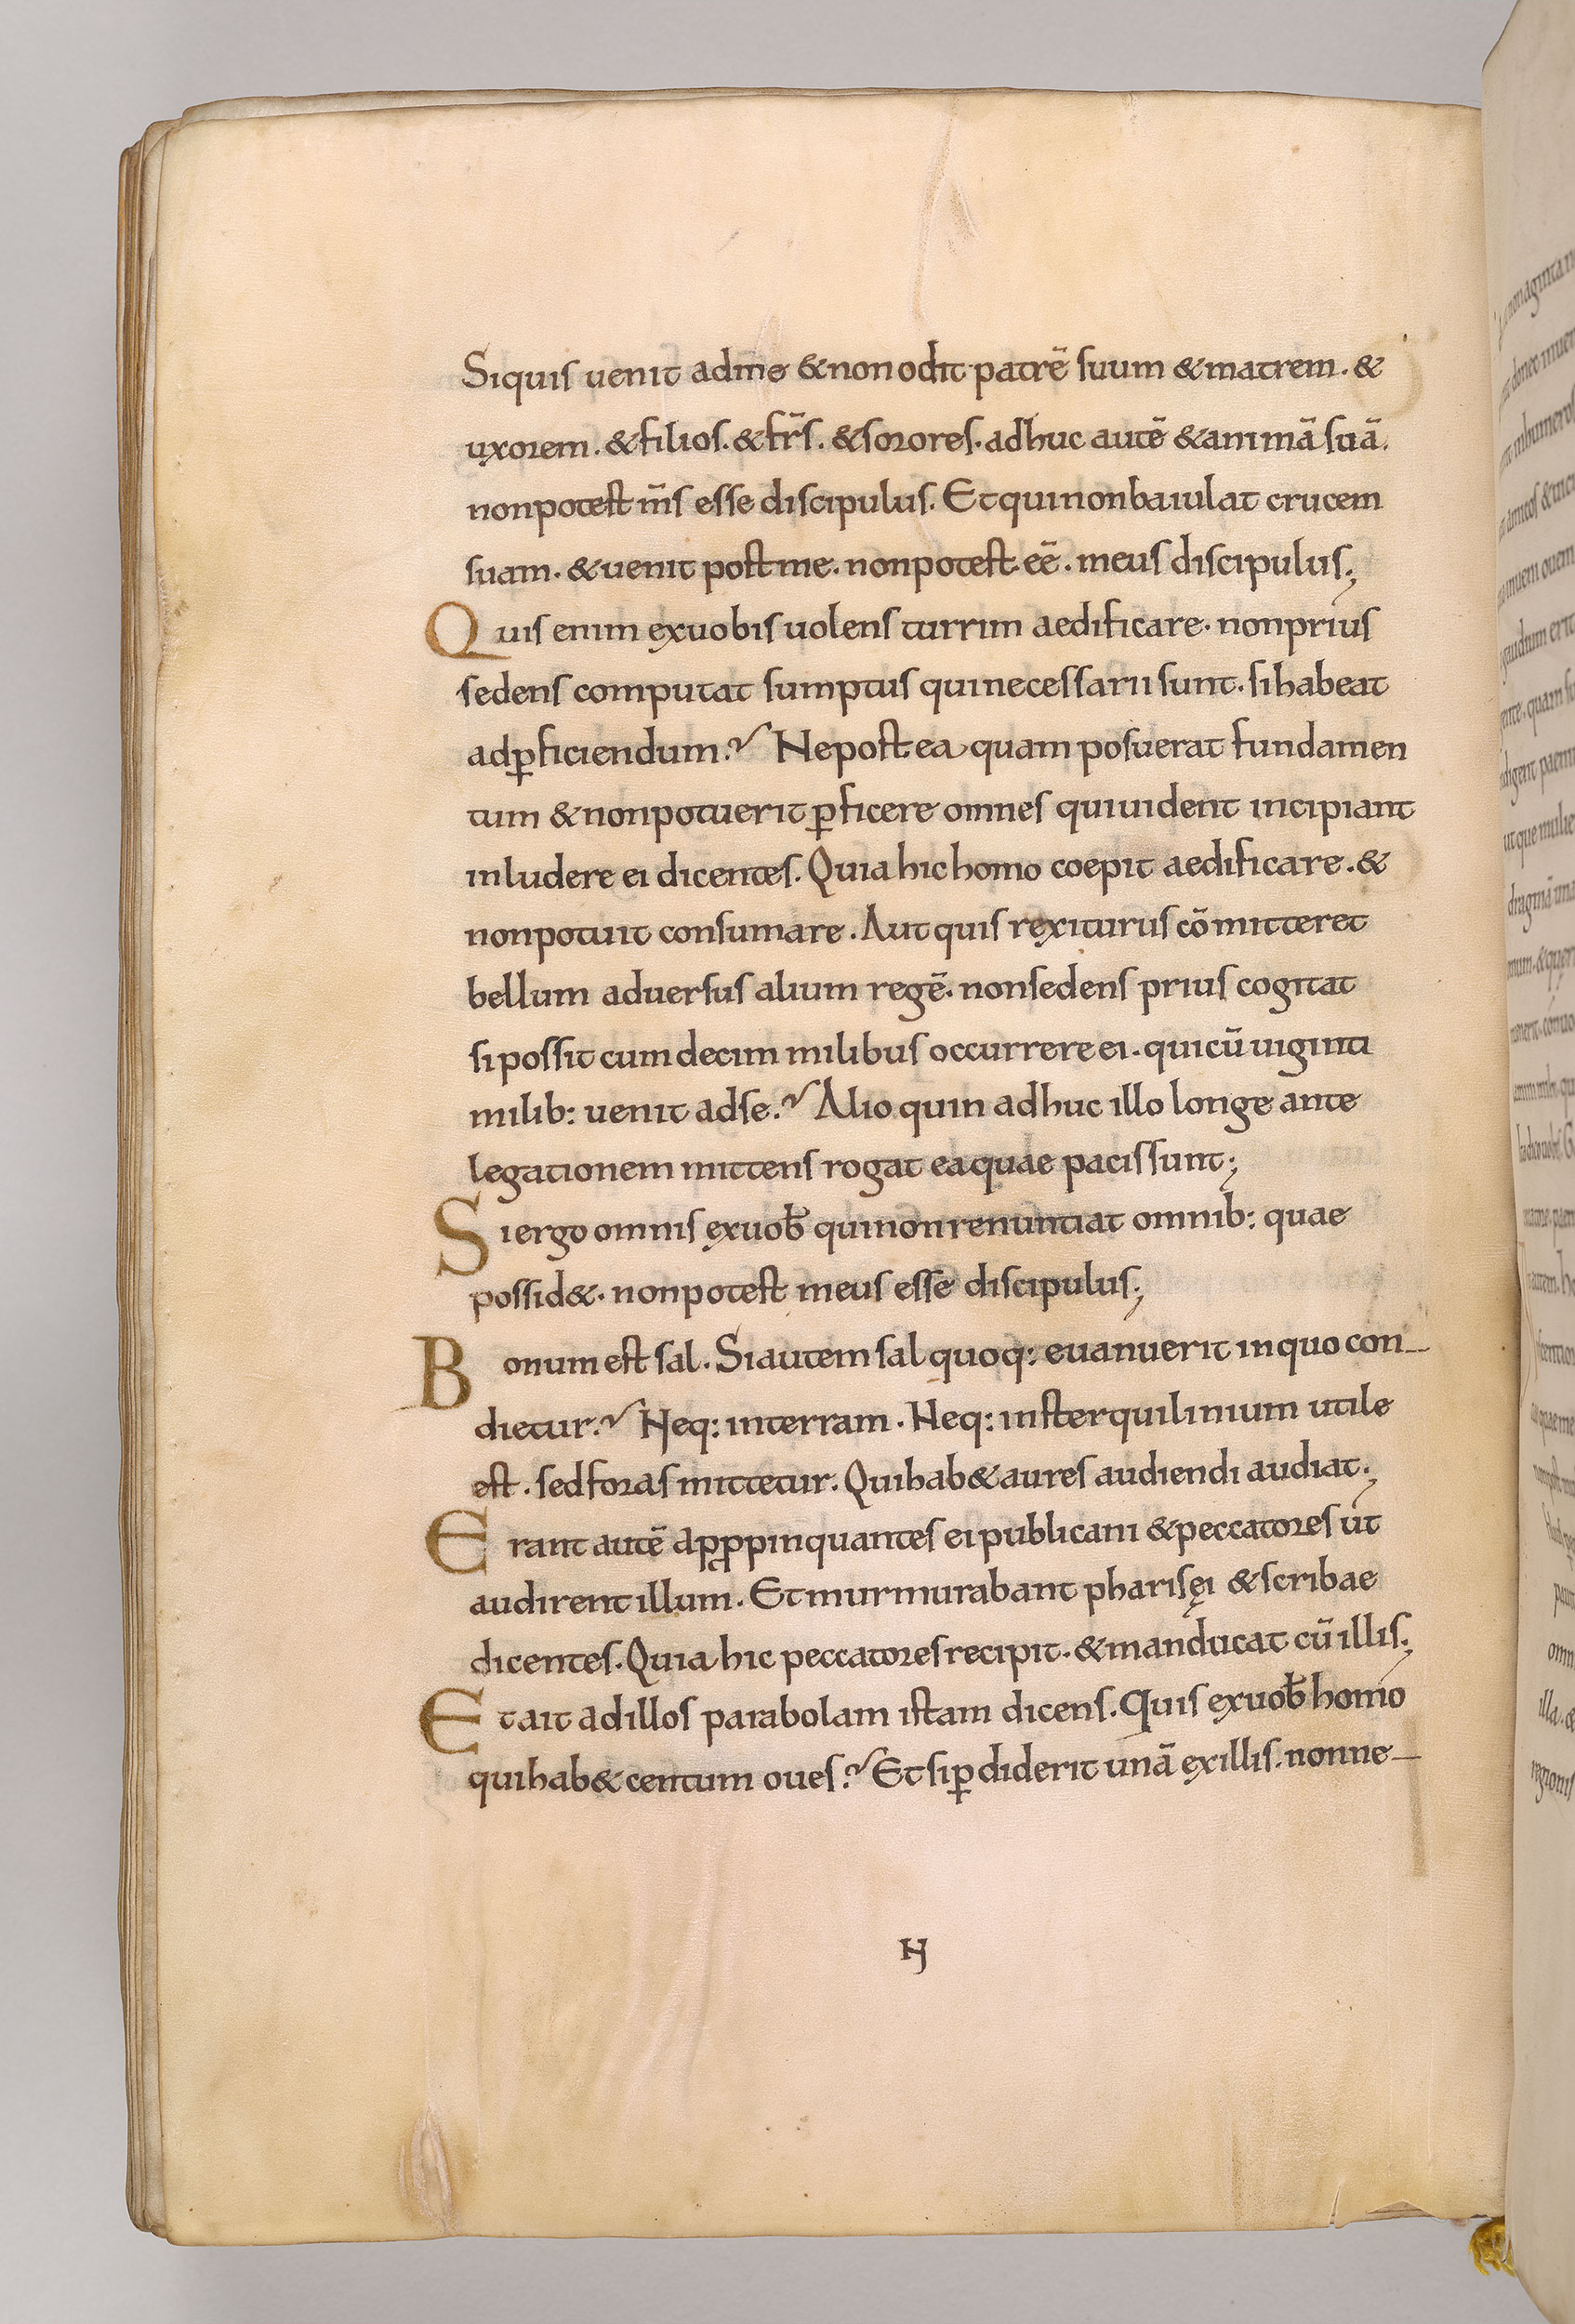 Siquis uenit adme & non odit patrē suum & matrem. &
uxorem. & filios. & fr̄s. & sorores. adhuc autē & animā suā.
non potest m̄s esse discipulus. Et qui non baiulat crucem
suam. & uenit post me. non potest eē. meus discipulus;
Quis enim ex uobis uolens turrim aedificare. non prius
sedens computat sumptus qui necessarii sunt. si habeat
ad ꝑficiendum? Ne postea quam posuerat fundamen
tum & non potuerit ꝑficere omnes qui uident incipiant
inludere ei dicentes. Quia hic homo coepit aedificare. &
non potuit consumare. Aut quis rex iturus cōmitteret
bellum aduersus alium regē. non sedens prius cogitat
si possit cum decim milibus occurrere ei. qui cū uiginti
milib: uenit ad se? Alio quin adhuc illo longe ante
legationem mittens rogat ea quae pacis sunt;
Si ergo omnis ex uob̄ qui non renuntiat omnib: quae
possid&. non potest meus esse discipulus;
Bonum est sal. Si autem sal quoq: euanuerit in quo con
dietur? Neq: in terram. Neq: in sterquilinium utile
est. sed foras mittetur. Qui hab& aures audiendi audiat;
Erant autē apꝓpinquantes ei publicani & peccatores ut
audirent illum. Et murmurabant pharisęi & scribae
dicentes. Quia hic peccatores recipit. & manducat cū illis;
Et ait ad illos parabolam istam dicens. Quis ex uob̄ homo
qui hab& centum oues? Et si ꝑdiderit unā ex illis. nonne